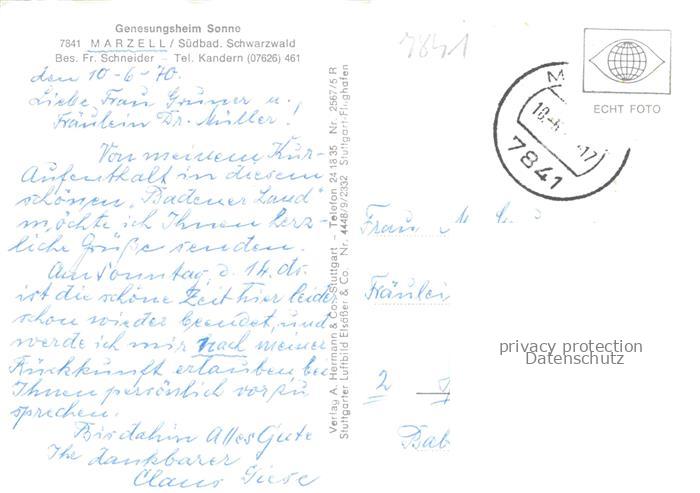 Genesungsheim Sonne
7841 MARZELL / Südbad. Schwarzwald
Bes. Fr. Schneider - Tel. Kandern (07626) 461
den 10-6-70.
Liebe Frau Gruner u.
Fräulein Dr. Müller!
Von meinem Kur-
Aufenthalt in diesem
schönen „Badener Land"
möchte ich Ihnen herz-
liche Grüße senden.
Am Sonntag, d. 14. ds.
ist die schöne Zeit hier leider
schon wieder beendet, und
werde ich mir nach meiner
Rückkunft erlauben bei
Ihnen persönlich vorzu
sprechen.
Bis dahin Alles Gute
Ihr dankbarer
Claus Giese
Verlag A. Hermann & Co. Stuttgart - Telefon 24 18 35 Nr. 2567/5 R
Stuttgarter Luftbild Elsäßer & Co. Nr. 4448/9/2332 Stuttgart-Flughafen
7841
M
10.-6.
17
7841
ECHT FOTO
Frau
Fräulei
2
Bab
privacy protection
Datenschutz